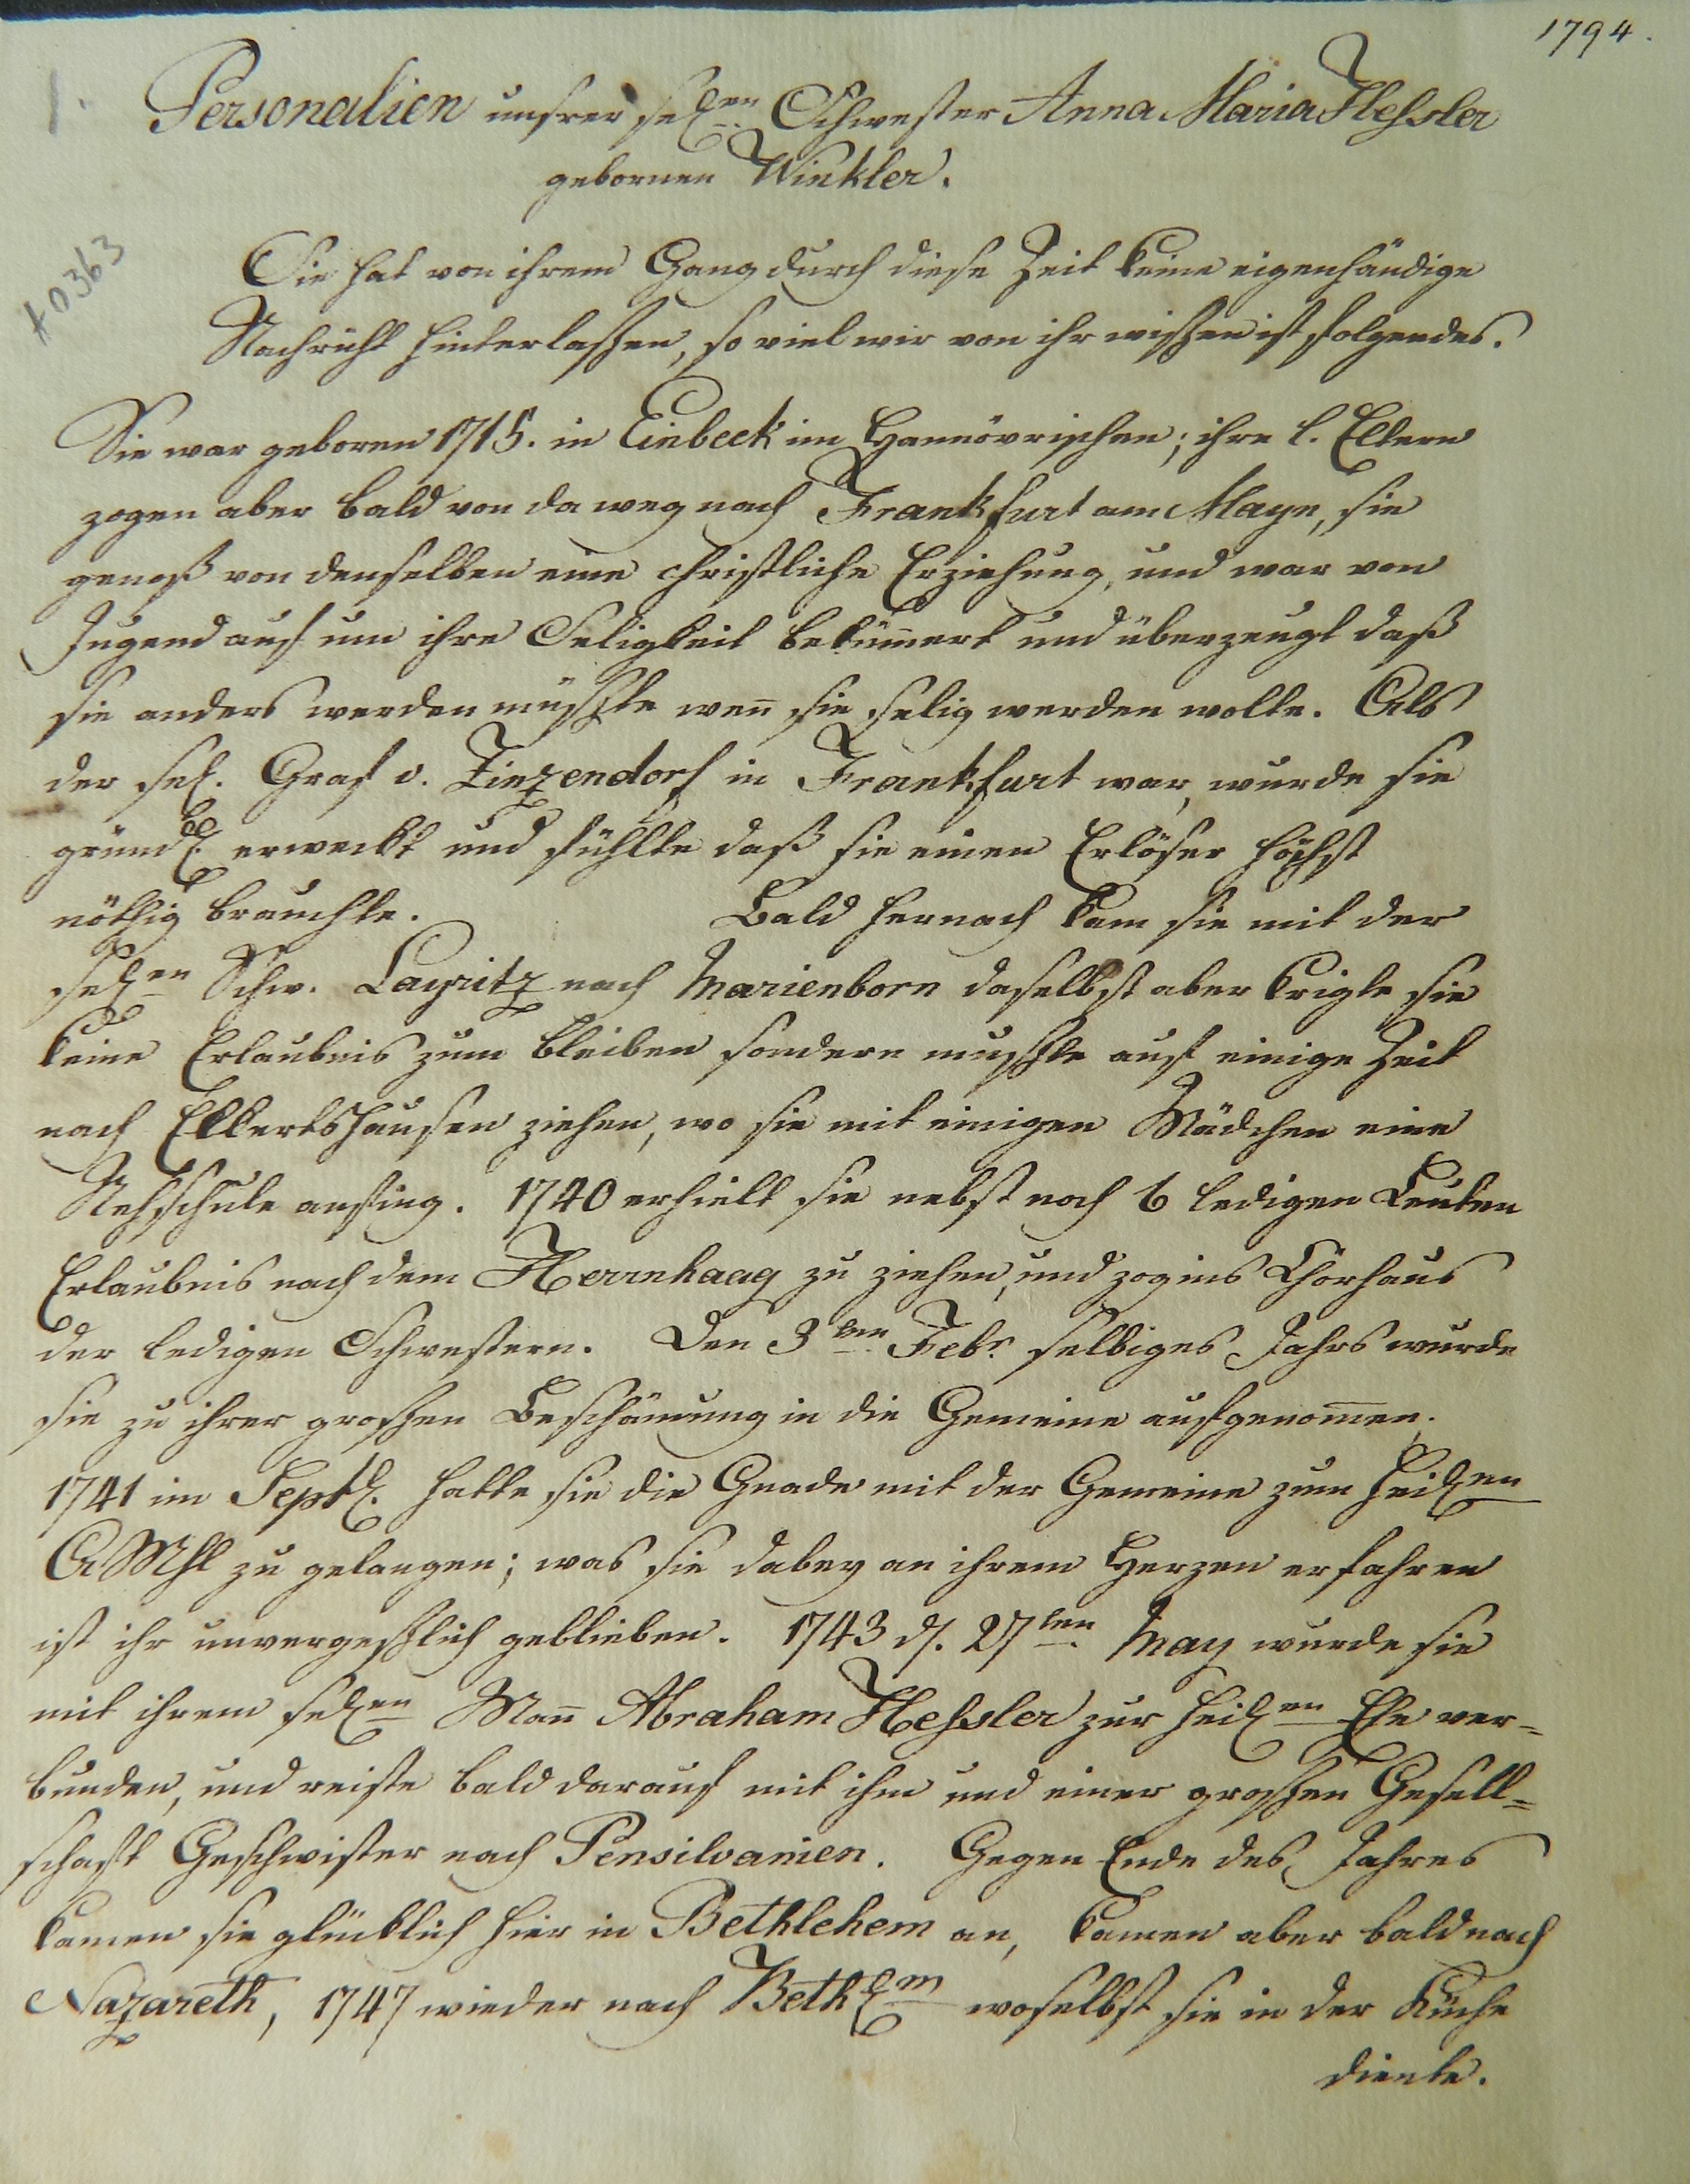 1794.
1.
Personalien unsrer sel.en Schwester Anna Maria Hessler
gebornen Winkler.
#0363
Sie hat von ihrem Gang durch diese Zeit keine eigenhändige
Nachricht hinterlassen, so viel wir von ihr wissen ist folgendes.
Sie war geboren 1715. in Einbeck im Hannövrischen; ihre l. Eltern
zogen aber bald von da weg nach Frankfurt am Mayn, sie
genoß von denselben eine christliche Erziehung, und war von
Jugend auf um ihre Seligkeit bekum̄ert und überzeugt daß
sie anders werden müsste wen̄ sie selig werden wolte. Als
der sel. Graf v. Zinzendorf in Frankfurt war, wurde sie
gründl. erweckt und fühlte daß sie einen Erlöser höchst
nöthig brauchte. Bald hernach kam sie mit der
sel.en Schw. Layritz nach Marienborn daselbst aber krigte sie
keine Erlaubnis zum bleiben sondern musste auf einige Zeit
nach Ekkertshausen ziehen, wo sie mit einigen Mädchen eine
Nehschule anfing. 1740 erhielt sie nebst noch 6 ledigen Leuten
Erlaubnis nach dem Herrnhaag zu ziehen, und zog ins Chorhaus
der ledigen Schwestern. Den 3ten Febr. selbiges Jahrs wurde
sie zu ihrer grossen Beschämung in die Gemeine aufgenom̄en.
1741 im Septl. hatte sie die Gnade mit der Gemeine zum heil.en
A Mhl zu gelangen; was sie dabey an ihrem Herzen erfahren
ist ihr unvergesslich geblieben. 1743 d. 27ten May wurde sie
mit ihrem sel.en Man̄ Abraham Hessler zur heil.en Ehe ver=
bunden, und reiste bald darauf mit ihm und einer grossen Gesell=
schaft Geschwister nach Pensilvanien. Gegen Ende des Jahres
kamen sie glücklich hier in Bethlehem an, kamen aber bald nach
Nazareth, 1747 wieder nach Bethl.m woselbst sie in der Küche
diente.